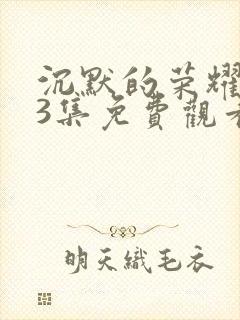 沉默的荣耀
3集免費觀看
明天織毛衣